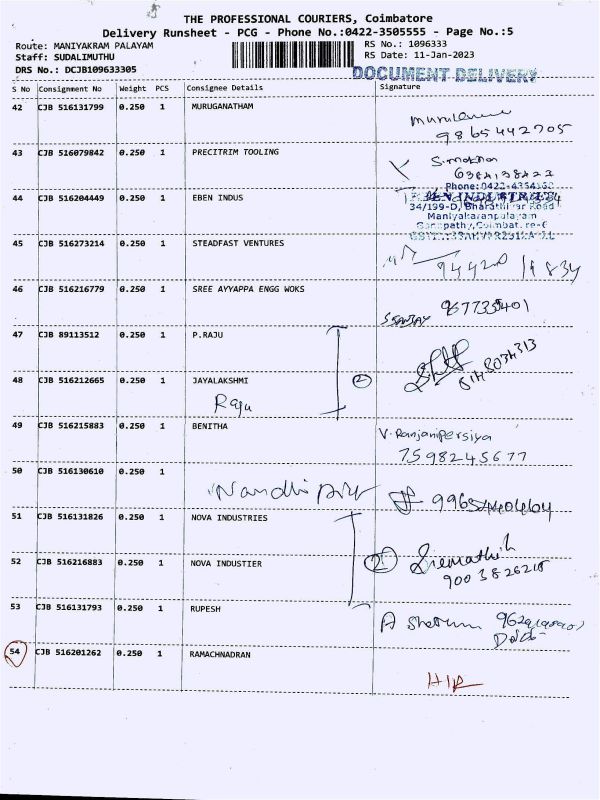 THE PROFESSIONAL COURIERS, Coimbatore
Delivery Runsheet - PCG - Phone No.:0422-3505555 - Page No.:5
Route: MANIYAKRAM PALAYAM
RS No.: 1096333
Staff: SUDALIMUTHU
RS Date: 11-Jan-2023
DRS No.: DCJB109633305
DOCUMENT DELIVERY
S No Consignment No Weight PCS Consignee Details Signature
42 CJB 516131799 0.250 1 MURUGANATHAM
9865442705
43 CJB 516079842 0.250 1 PRECITRIM TOOLING
6384138422
Phone: 0422-4354162
44 CJB 516204449 0.250 1 EBEN INDUS
EBEN INDUSTRIES
34/199-D, Bharathiyar Road
Maniyakaranpalayam
Ganapathy, Coimbatore-6
45 CJB 516273214 0.250 1 STEADFAST VENTURES
94420 19834
46 CJB 516216779 0.250 1 SREE AYYAPPA ENGG WOKS
S SANJAY
47 CJB 89113512 0.250 1 P.RAJU
48 CJB 516212665 0.250 1 JAYALAKSHMI
2
Raju
49 CJB 516215883 0.250 1 BENITHA
V. Ranjanipersiya
7598245677
50 CJB 516130610 0.250 1
51 CJB 516131826 0.250 1 NOVA INDUSTRIES
52 CJB 516216883 0.250 1 NOVA INDUSTIER
2
9003826218
53 CJB 516131793 0.250 1 RUPESH
54 CJB 516201262 0.250 1 RAMACHNADRAN